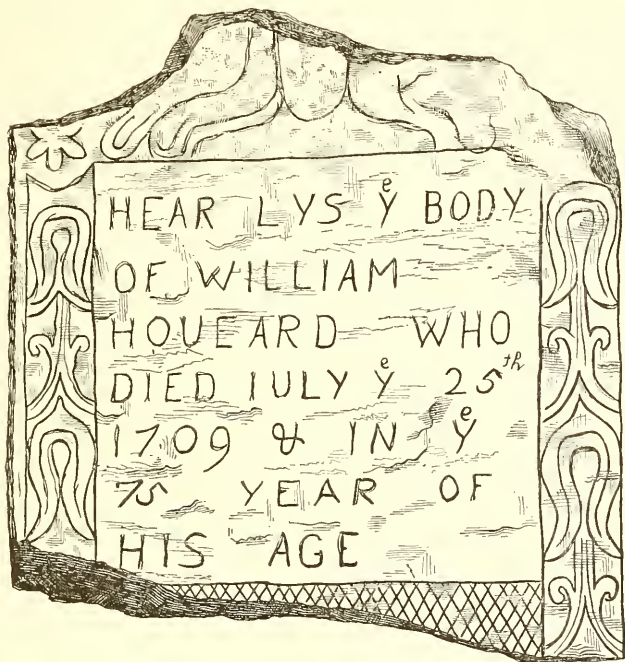 HEAR LYS yͤ BODY
OF WILLIAM
HOUEARD WHO
DIED IULY yͤ 25ᵗʰ
1709 & IN yͤ
75 YEAR OF
HIS AGE